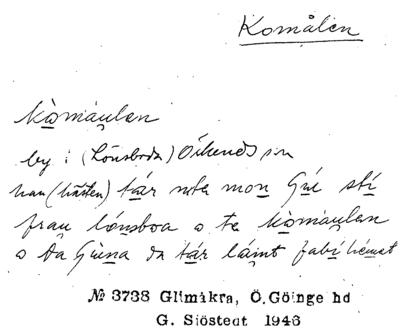 Komålen
kòmáulen
by i (Lönsboda) Örkends sn
han (hästen) tár nte mon Gúe stí
frau lónsboa o te kòmáulen
o da Gúna da tár láint fabí hémet
№ 3738 Glimåkra, Ö. Göinge hd
G. Sjöstedt 1946